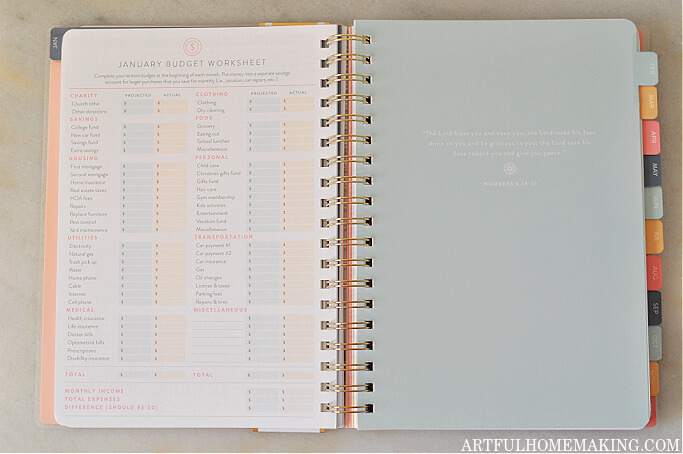 JAN
$
JANUARY BUDGET WORKSHEET
Complete your written budget at the beginning of each month. Put money into a separate savings
account for larger purchases that you save for monthly (i.e., vacation, car repairs, etc.).
CHARITY PROJECTED ACTUAL
Church tithe
Other donations
SAVINGS
College fund
New car fund
Savings fund
Extra savings
HOUSING
First mortgage
Second mortgage
Home insurance
Real estate taxes
HOA fees
Repairs
Replace furniture
Pest control
Yard maintenance
UTILITIES
Electricity
Natural gas
Trash pick up
Water
Home phone
Cable
Internet
Cell phone
MEDICAL
Health insurance
Life insurance
Doctor bills
Optometrist bills
Prescriptions
Disability insurance
TOTAL
CLOTHING PROJECTED ACTUAL
Clothing
Dry cleaning
FOOD
Grocery
Eating out
School lunches
Miscellaneous
PERSONAL
Child care
Christmas gifts fund
Gifts fund
Hair care
Gym membership
Kids activities
Entertainment
Vacation fund
Miscellaneous
TRANSPORTATION
Car payment #1
Car payment #2
Car insurance
Gas
Oil changes
License & taxes
Parking fees
Repairs & tires
MISCELLANEOUS
TOTAL
MONTHLY INCOME
TOTAL EXPENSES
DIFFERENCE (SHOULD BE $0)
"The Lord bless you and keep you; the Lord make his face
shine on you and be gracious to you; the Lord turn his
face toward you and give you peace."
NUMBERS 6:24-26
FEB
MAR
APR
MAY
AUG
SEP
ARTFULHOMEMAKING.COM